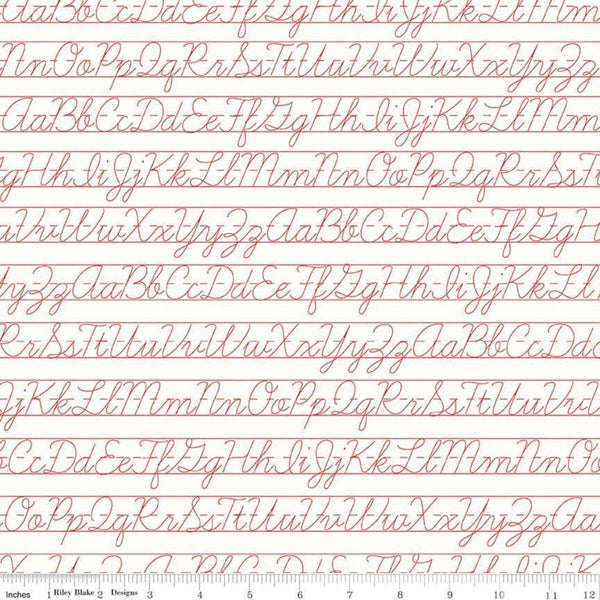 AaBbCcDdEeFfGgHhIiJjKkLlMm
NnOoPpQqRrSsTtUuVvWwXxYyZz
AaBbCcDdEeFfGgHhIiJjKkLlMm
gHhIiJjKkLlMmNnOoPpQqRrSsT
uVvWwXxYyZzAaBbCcDdEeFfGgH
yZzAaBbCcDdEeFfGgHhIiJjKkLl
RrSsTtUuVvWwXxYyZzAaBbCc
JjKkLlMmNnOoPpQqRrSsTtUu
bCcDdEeFfGgHhIiJjKkLlMmNnOo
OoPpQqRrSsTtUuVvWwXxYyZzAa
AaBbCcDdEeFfGgHhIiJjKkLlMm
Inches 1 Riley Blake 2 Designs 3 4 5 6 7 8 9 10 11 12